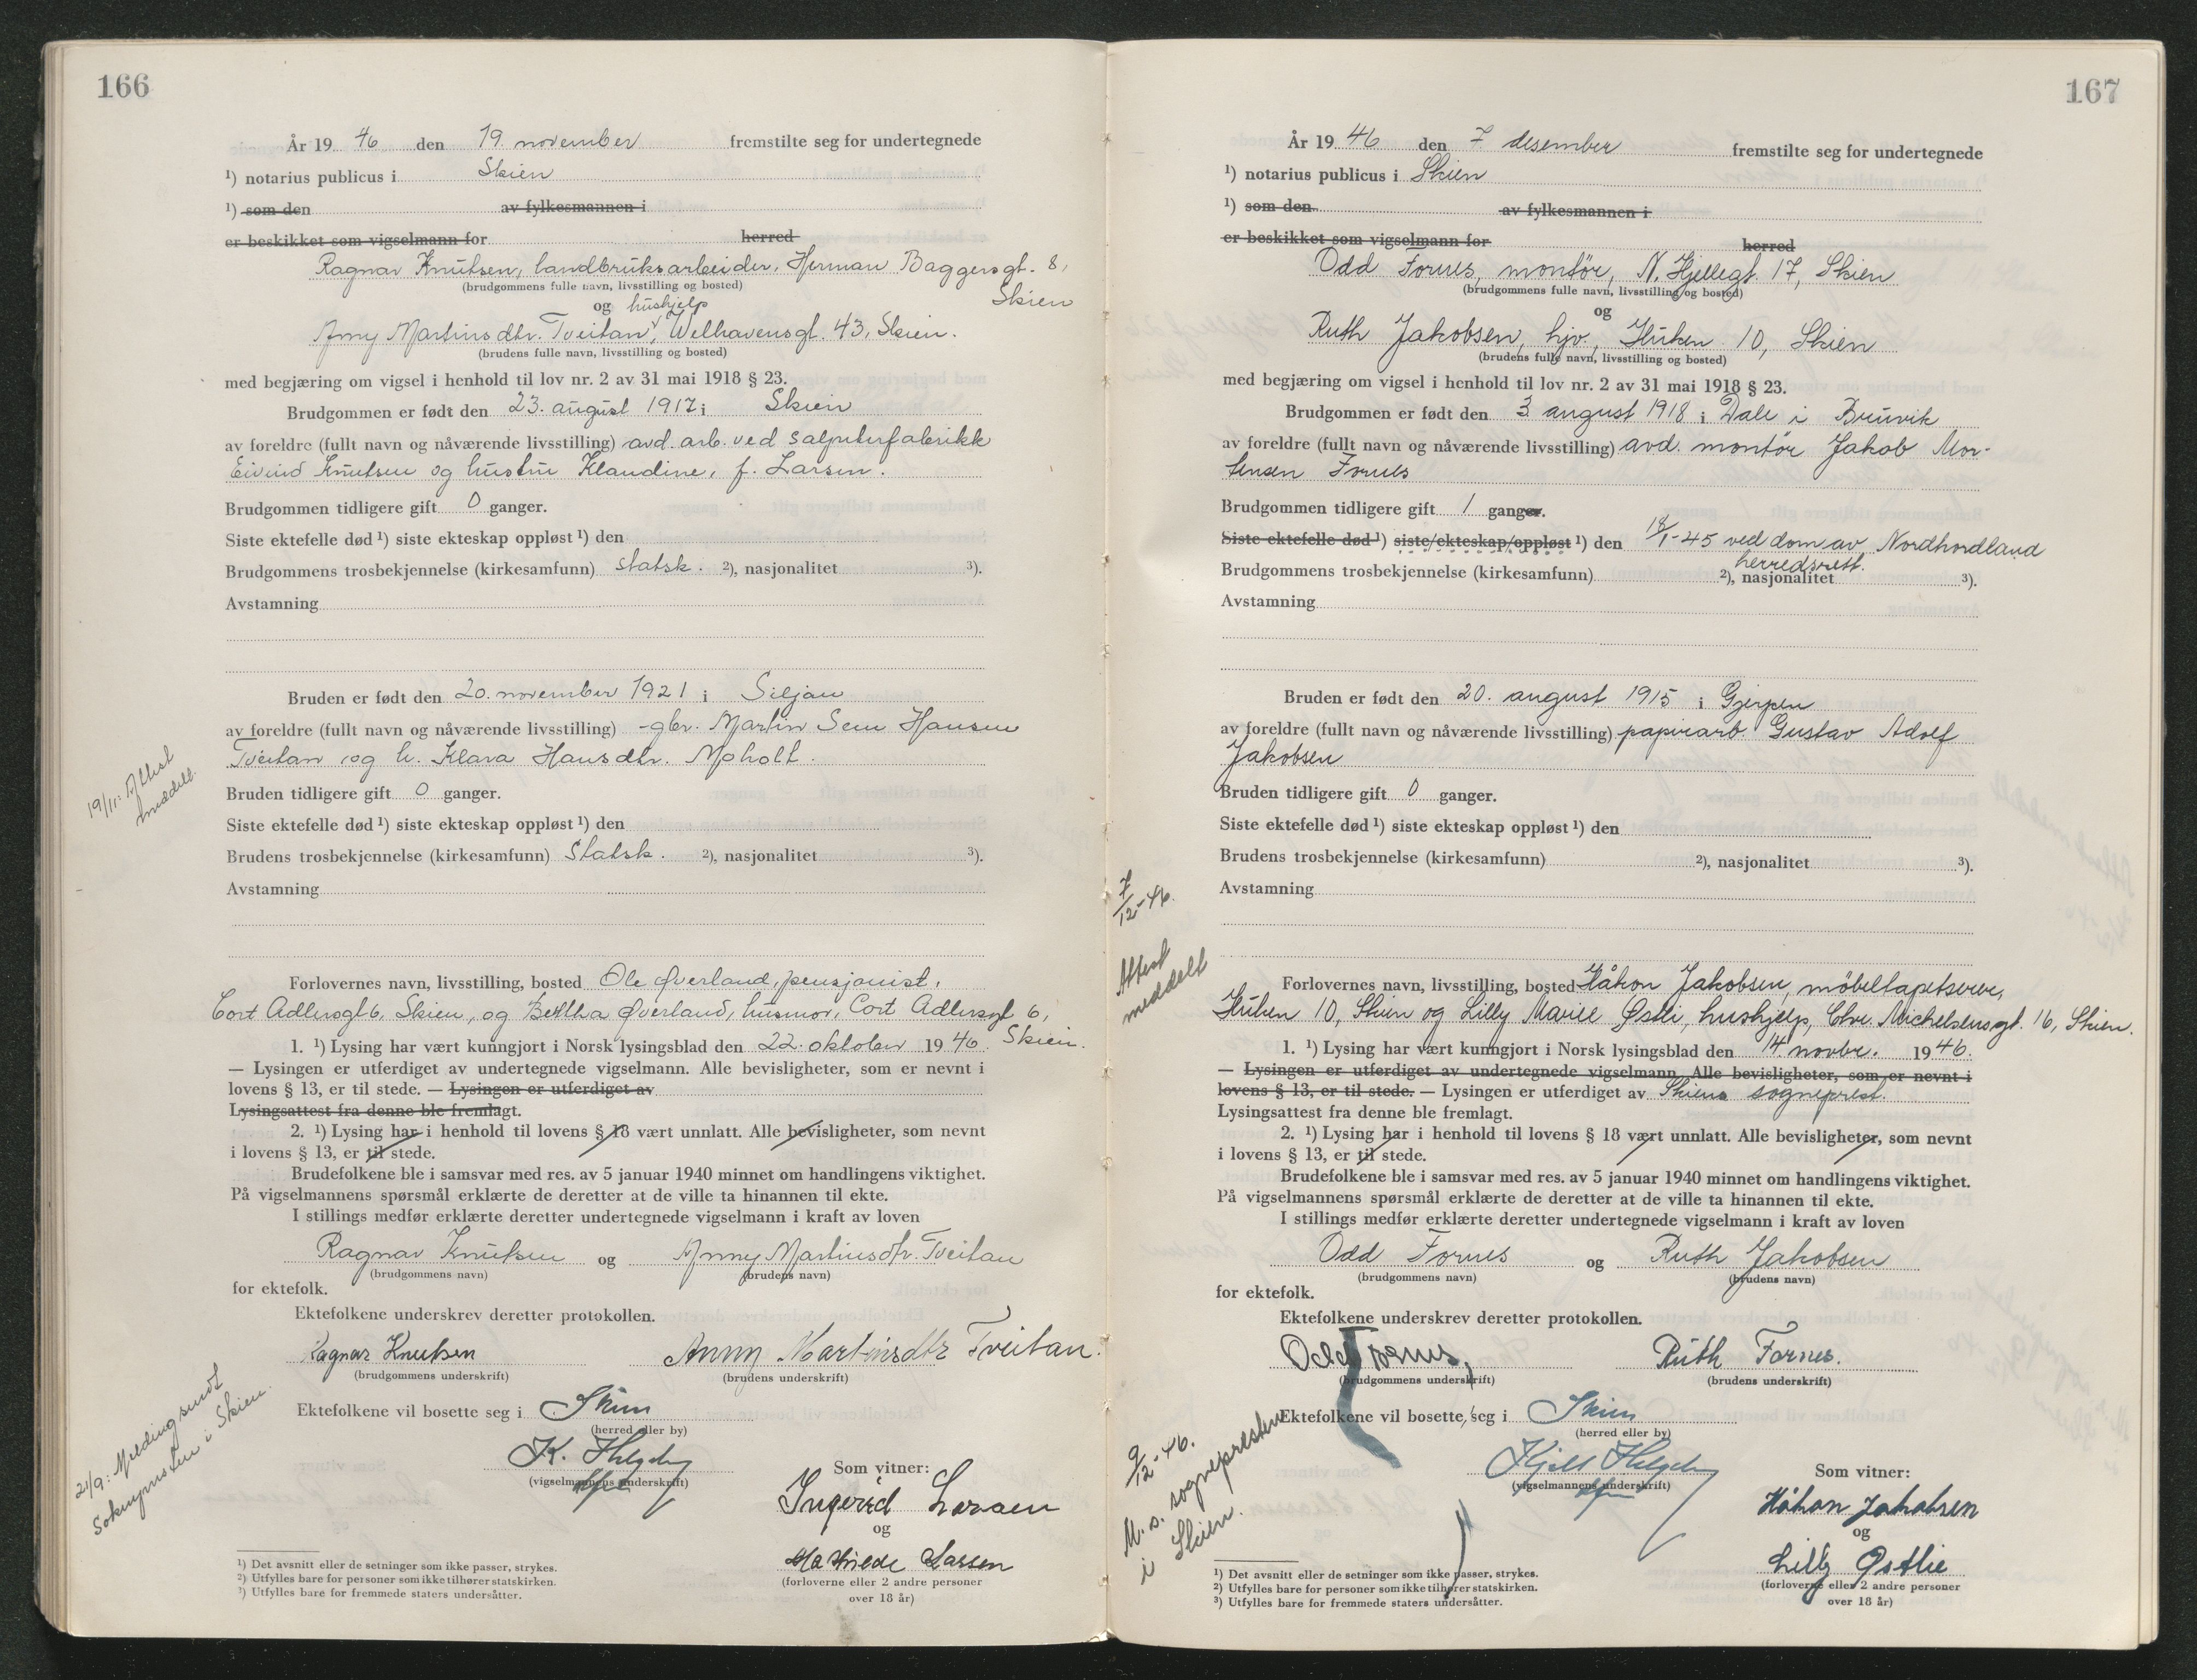 166
År 19 46 den 19 november fremstilte seg for undertegnede
¹) notarius publicus i Skien
¹) som den av fylkesmannen i
er beskikket som vigselmann for herred
Ragnar Knutsen, landbruksarbeider, Herman Baggersgt. 8,
(brudgommens fulle navn, livsstilling og bosted)
Skien
og hushjelp
Anny Martinsdtr. Tveitan, Welhavensgt. 43, Skien.
(brudens fulle navn, livsstilling og bosted)
med begjæring om vigsel i henhold til lov nr. 2 av 31 mai 1918 § 23.
Brudgommen er født den 23. august 1917 i Skien
av foreldre (fullt navn og nåværende livsstilling) avd. arb. ved salpeterfabrikk
Eivind Knutsen og hustru Klaudine, f. Larsen.
Brudgommen tidligere gift 0 ganger.
Siste ektefelle død ¹) siste ekteskap oppløst ¹) den
Brudgommens trosbekjennelse (kirkesamfunn) Statsk. ²), nasjonalitet ³).
Avstamning
Bruden er født den 20. november 1921 i Siljan
av foreldre (fullt navn og nåværende livsstilling) -gbr. Martin Sem Hansen
Tveitan og h. Klara Hansdtr. Moholt.
19/11: Attest
meddelt.
Bruden tidligere gift 0 ganger.
Siste ektefelle død ¹) siste ekteskap oppløst ¹) den
Brudens trosbekjennelse (kirkesamfunn) Statsk. ²), nasjonalitet ³).
Avstamning
Forlovernes navn, livsstilling, bosted Ole Øverland, pensjonist,
Cort Adlersgt 6, Skien, og Bertha Øverland, husmor, Cort Adlersgt 6,
Skien.
1. ¹) Lysing har vært kunngjort i Norsk lysingsblad den 22. oktober 19 46.
— Lysingen er utferdiget av undertegnede vigselmann. Alle bevisligheter, som er nevnt i
lovens § 13, er til stede. — Lysingen er utferdiget av
Lysingsattest fra denne ble fremlagt.
2. ¹) Lysing har i henhold til lovens § 18 vært unnlatt. Alle bevisligheter, som nevnt
i lovens § 13, er til stede.
Brudefolkene ble i samsvar med res. av 5 januar 1940 minnet om handlingens viktighet.
På vigselmannens spørsmål erklærte de deretter at de ville ta hinannen til ekte.
I stillings medfør erklærte deretter undertegnede vigselmann i kraft av loven
Ragnar Knutsen og Anny Martinsdtr. Tveitan
(brudgommens navn) (brudens navn)
for ektefolk.
Ektefolkene underskrev deretter protokollen.
Ragnar Knutsen Anny Martinsdtr Tveitan.
(brudgommens underskrift) (brudens underskrift)
21/9: Melding sendt
Soknepresten i Skien.
Ektefolkene vil bosette seg i Skien
(herred eller by)
K. Helgeby
(vigselmannens underskrift)
Som vitner:
Ingerid Larsen
og
Mathilde Larsen
(forloverne eller 2 andre personer
over 18 år)
¹) Det avsnitt eller de setninger som ikke passer, strykes.
²) Utfylles bare for personer som ikke tilhører statskirken.
³) Utfylles bare for fremmede staters undersåtter.
167
År 19 46 den 7 desember fremstilte seg for undertegnede
¹) notarius publicus i Skien
¹) som den av fylkesmannen i
er beskikket som vigselmann for herred
Odd Fornes, montør, N. Hjellegt. 17, Skien
(brudgommens fulle navn, livsstilling og bosted)
og
Ruth Jakobsen, hjv., Huken 10, Skien
(brudens fulle navn, livsstilling og bosted)
med begjæring om vigsel i henhold til lov nr. 2 av 31 mai 1918 § 23.
Brudgommen er født den 3 august 1918 i Dale i Bruvik
av foreldre (fullt navn og nåværende livsstilling) avd. montør Jakob Mor-
tensen Fornes
Brudgommen tidligere gift 1 ganger.
Siste ektefelle død ¹) siste ekteskap oppløst ¹) den 18/1-45 ved dom av Nordhordland
herredsrett.
Brudgommens trosbekjennelse (kirkesamfunn) ²), nasjonalitet ³).
Avstamning
Bruden er født den 20. august 1915 i Gjerpen
av foreldre (fullt navn og nåværende livsstilling) papirarb. Gustav Adolf
Jakobsen
Bruden tidligere gift 0 ganger.
Siste ektefelle død ¹) siste ekteskap oppløst ¹) den
Brudens trosbekjennelse (kirkesamfunn) ²), nasjonalitet ³).
Avstamning
7/12-46.
Attest
meddelt
Forlovernes navn, livsstilling, bosted Håkon Jakobsen, møbeltapetserer,
Huken 10, Skien og Lilly Marie Østli, hushjelp, Chr. Michelsensgt. 16, Skien.
1. ¹) Lysing har vært kunngjort i Norsk lysingsblad den 14 novbr. 19 46.
— Lysingen er utferdiget av undertegnede vigselmann. Alle bevisligheter, som er nevnt i
lovens § 13, er til stede. — Lysingen er utferdiget av Skiens sogneprest.
Lysingsattest fra denne ble fremlagt.
2. ¹) Lysing har i henhold til lovens § 18 vært unnlatt. Alle bevisligheter, som nevnt
i lovens § 13, er til stede.
Brudefolkene ble i samsvar med res. av 5 januar 1940 minnet om handlingens viktighet.
På vigselmannens spørsmål erklærte de deretter at de ville ta hinannen til ekte.
I stillings medfør erklærte deretter undertegnede vigselmann i kraft av loven
Odd Fornes og Ruth Jakobsen
(brudgommens navn) (brudens navn)
for ektefolk.
Ektefolkene underskrev deretter protokollen.
Odd Fornes, Ruth Fornes.
(brudgommens underskrift) (brudens underskrift)
9/12-46.
M. s. sognepresten
i Skien.
Ektefolkene vil bosette seg i Skien
(herred eller by)
Kjell Helgeby
(vigselmannens underskrift)
Som vitner:
Håkon Jakobsen
og
Lilly Østlie
(forloverne eller 2 andre personer
over 18 år)
¹) Det avsnitt eller de setninger som ikke passer, strykes.
²) Utfylles bare for personer som ikke tilhører statskirken.
³) Utfylles bare for fremmede staters undersåtter.